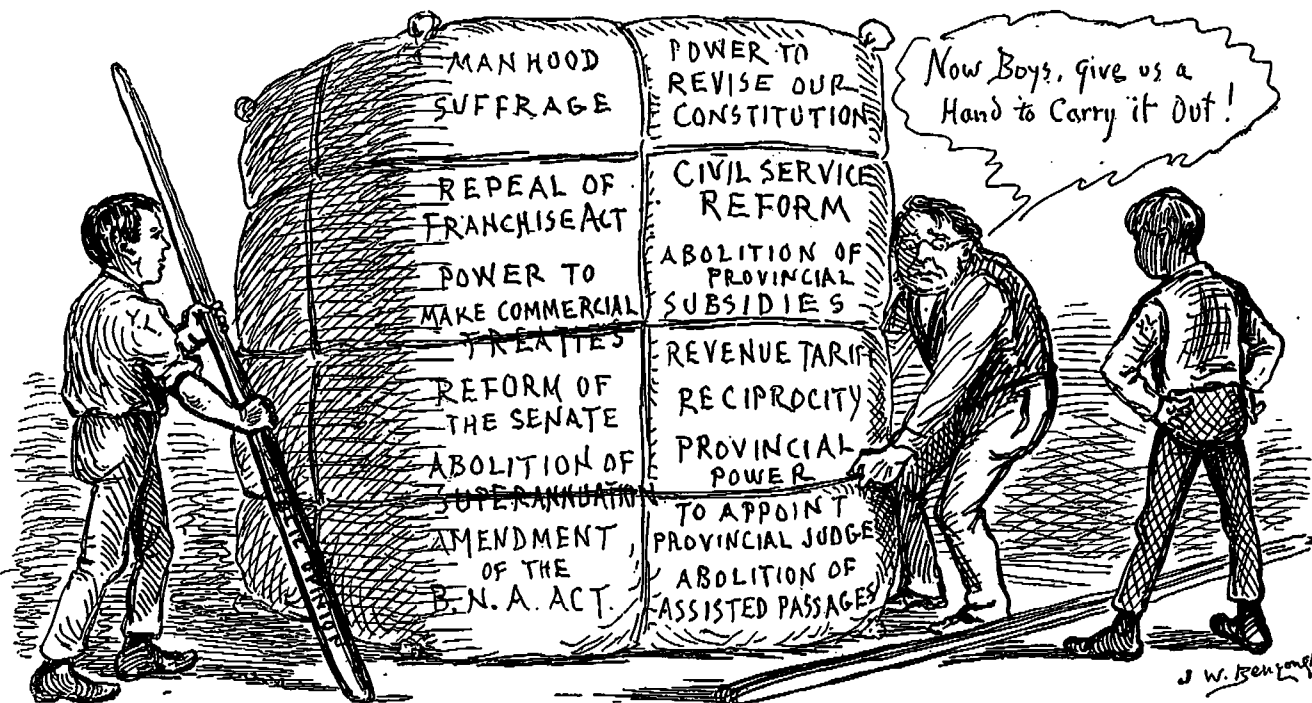 MANHOOD
SUFFRAGE
REPEAL OF
FRANCHISE ACT
POWER TO
MAKE COMMERCIAL
TREATIES
REFORM OF
THE SENATE
ABOLITION OF
SUPERANNUATION
AMENDMENT
OF THE
B.N.A. ACT.
POWER TO
REVISE OUR
CONSTITUTION
CIVIL SERVICE
REFORM
ABOLITION OF
PROVINCIAL
SUBSIDIES
REVENUE TARIFF
RECIPROCITY
PROVINCIAL
POWER
TO APPOINT
PROVINCIAL JUDGE
ABOLITION OF
ASSISTED PASSAGES
Now Boys, give us a
Hand to Carry it Out!
OPINION
J W. Bengough